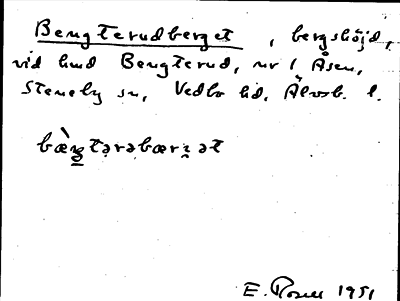 Bengterudberget, bergshöjd,
vid hmd Bengterud, nr 1 Åsen,
Steneby sn, Vedbo hd, Älvsb. l.
bæ̀ŋtərəbærjət
E. Rosell 1951